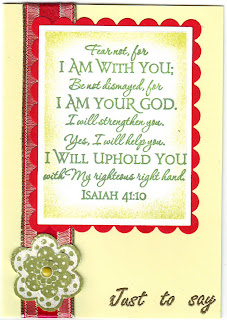 Fear not, for
I AM WITH YOU;
Be not dismayed, for
I AM YOUR GOD.
I will strengthen you.
Yes, I will help you.
I WILL UPHOLD YOU
with My righteous right hand.
ISAIAH 41:10
Just to say